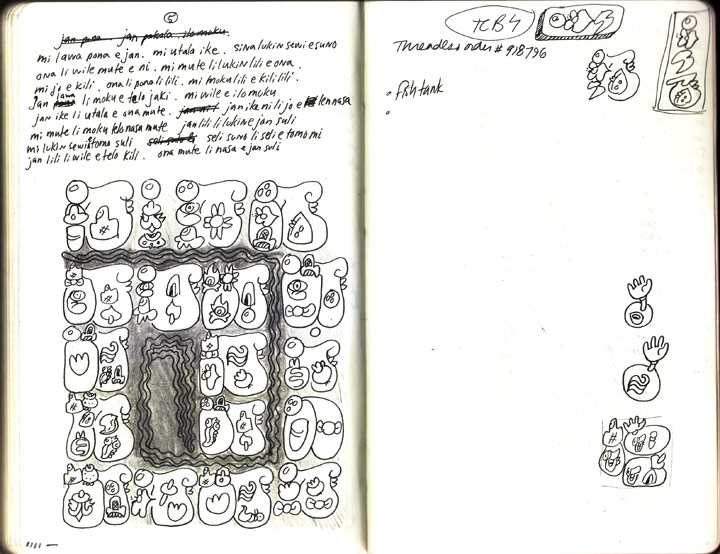 5
jan pona jan pakala ilo moku.
mi lawa pona e jan. mi utala ike. sina lukin sewi e suno
ona li wile mute e ni. mi mute li lukin lili e ona.
mi jo e kili. ona li pona li lili. mi moku lili e kili lili.
jan lawa li moku e telo jaki. mi wile e ilo moku
jan ike li utala e ona mute. jan ike ni li jo e len nasa
mi mute li moku telo nasa mute jan lili li lukin e jan suli
mi lukin sewi tomo suli seli suno li seli e tomo mi
jan lili li wile e telo kili. ona mute li nasa e jan suli
TCB4
Threadless order # 918796
• fish tank
•